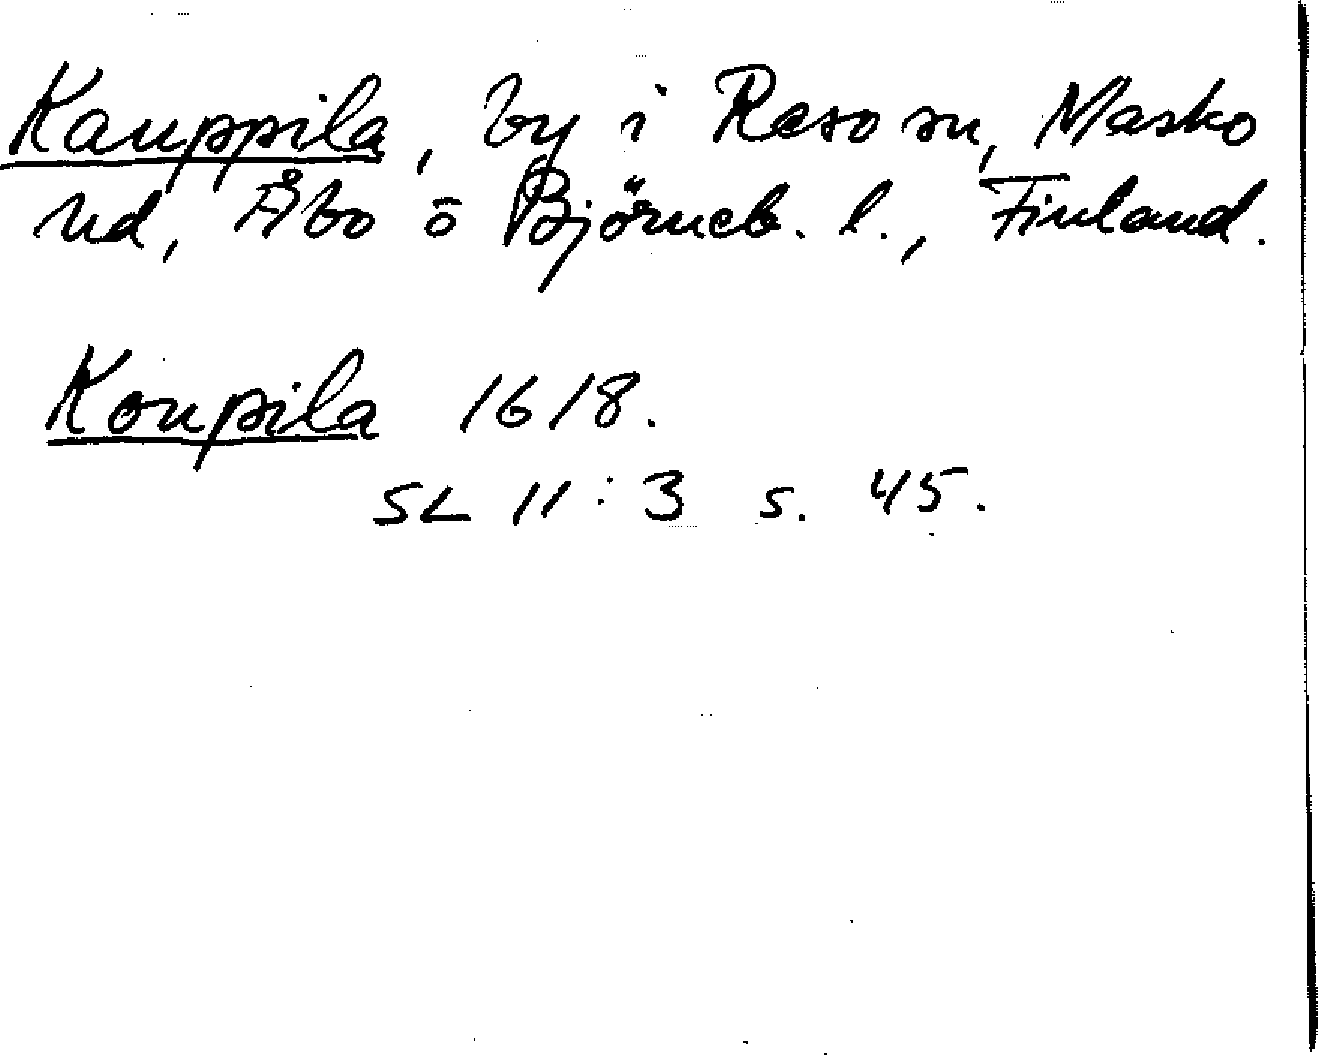 Kauppila, by i Reso sn, Masko
hd, Åbo o Björneb. l., Finland.
Koupila 1618.
SL 11:3 s. 45.